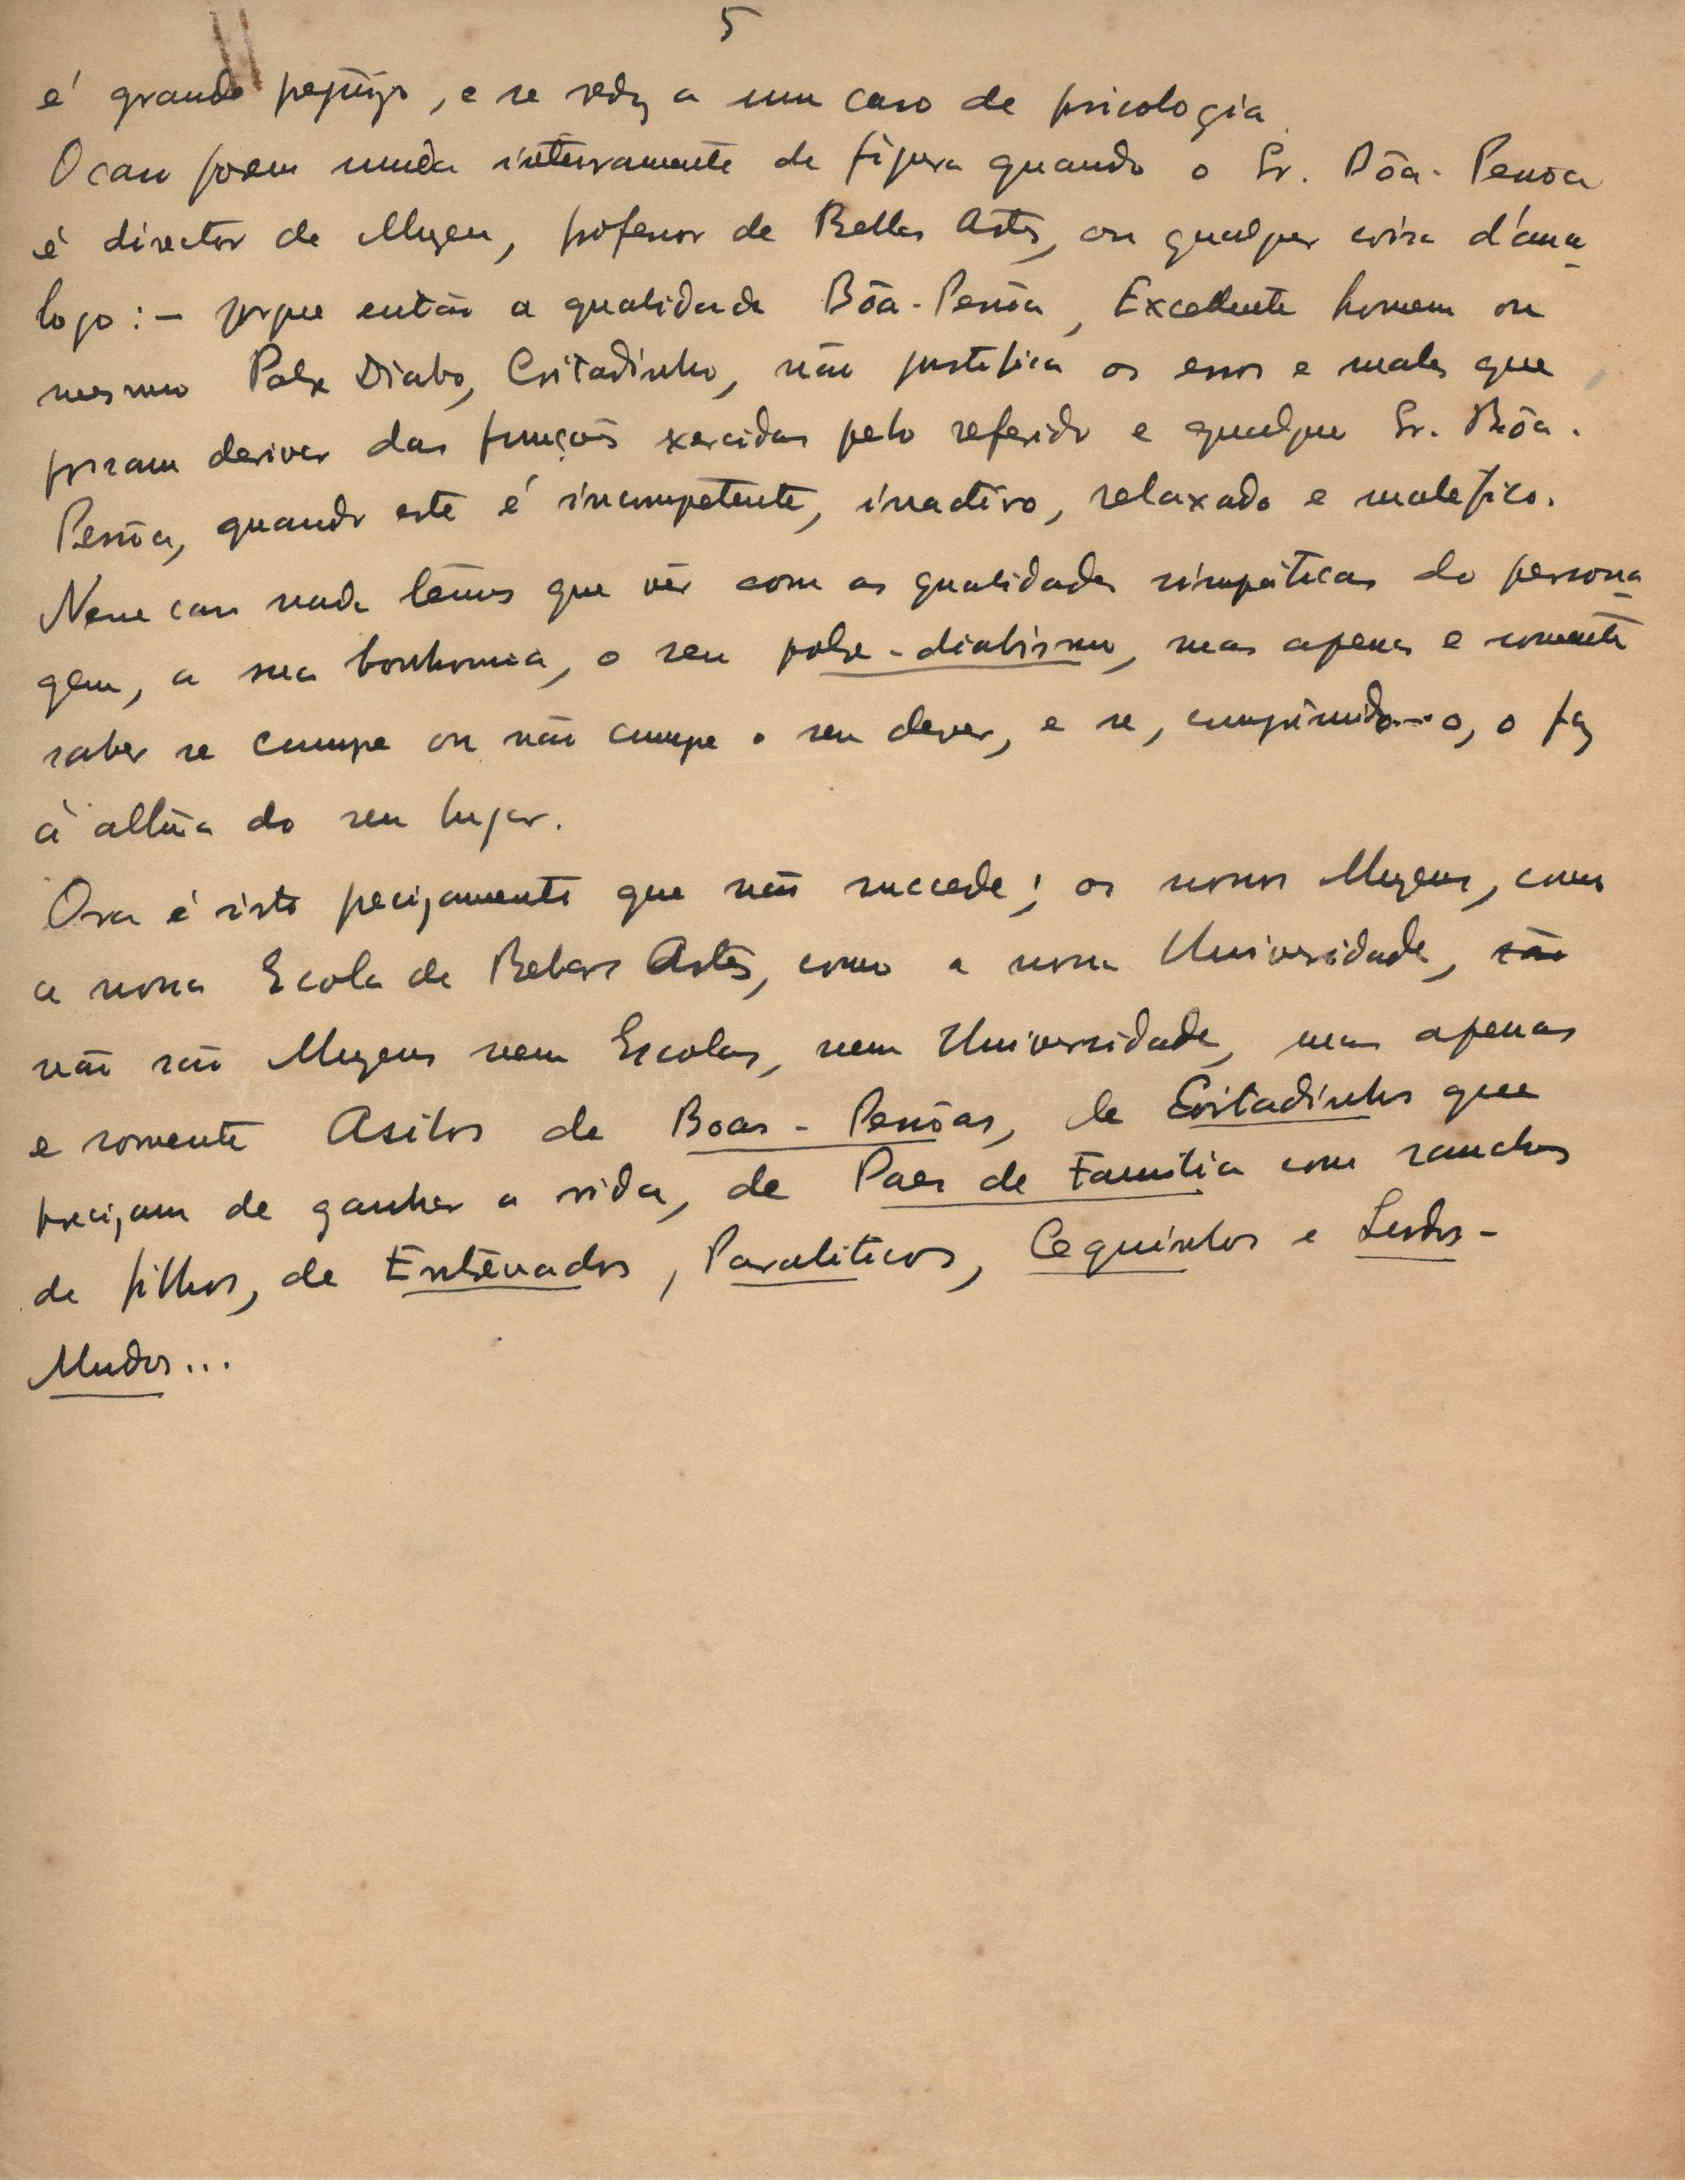 5
é grande prejuizo, e se reduz a um caso de psicologia.
O caso porem muda inteiramente de figura quando o Sr. Bôa-Pessôa
é director de Muzeu, professor de Bellas Artes, ou qualquer coisa d'ana-
logo: — porque então a qualidade Bôa-Pessôa, Excellente homem ou
mesmo Pobre Diabo, Coitadinho, não justifica os erros e males que
possam derivar das funções exercidas pelo referido e qualquer Sr. Bôa-
Pessôa, quando este é incompetente, inactivo, relaxado e malefico.
Nesse caso nada têmos que vêr com as qualidades simpáticas do persona-
gem, a sua bonhomia, o seu pobre-diabismo, mas apenas e somente
saber se cumpre ou não cumpre o seu dever, e se, cumprindo-o, o faz
á altura do seu lugar.
Ora é isto precizamente que não succede; os nossos Muzeus, como
a nossa Escola de Belas Artes, como a nossa Universidade, são
não são Muzeus nem Escolas, nem Universidade, mas apenas
e somente Asilos de Boas-Pessôas, de Coitadinhos que
precizam de ganhar a vida, de Paes de Familia com ranchos
de filhos, de Entrévados, Paraliticos, Ceguinhos e Surdos-
Mudos...